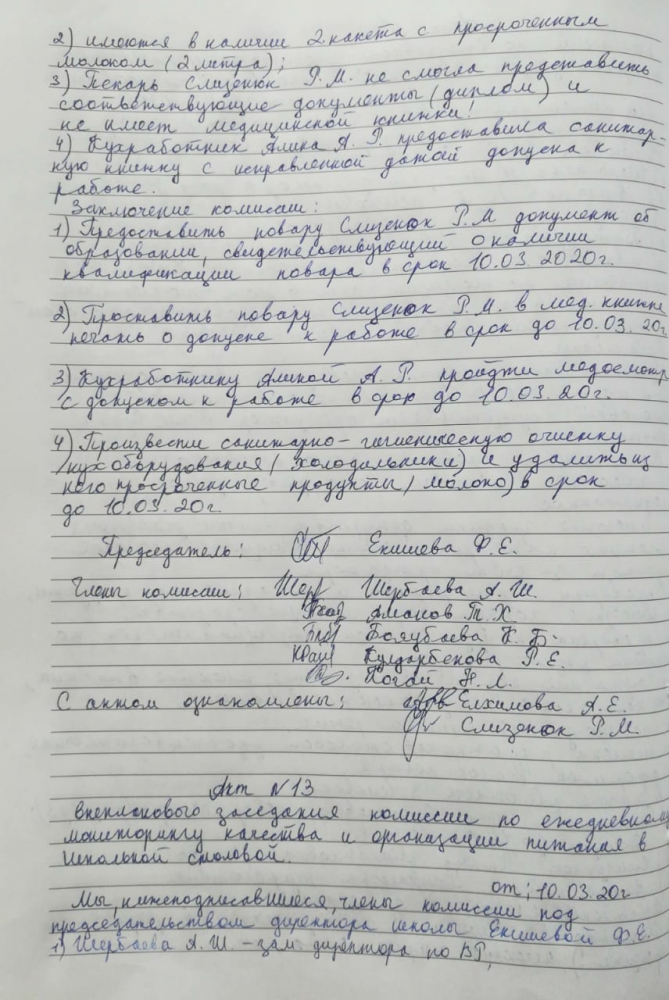 2) имеются в наличии 2 пакета с просроченным
молоком (2 литра);
3) Пекарь Слизенюк Р.М. не смогла представить
соответствующие документы (диплом) и
не имеет медицинской книжки!
4) Кухработник Алина А. Р. предоставила санитар-
ную книжку с исправленной датой допуска к
работе.
Заключение комиссии:
1) Предоставить повару Слизенюк Р.М документ об
образовании, свидетельствующий о наличии
квалификации повара в срок 10.03 2020г.
2) Проставить повару Слизенюк Р.М. в мед. книжке
печать о допуске к работе в срок до 10.03.20г.
3) Кухработнику Алиной А. Р. пройти медосмотр
с допуском к работе в срок до 10.03.20г.
4) Произвести санитарно-гигиеническую очистку
кухоборудования (холодильники) и удалить из
него просроченные продукты (молоко) в срок
до 10.03.20г.
Председатель: Екишева Ф.Е.
Члены комиссии: Шербаева А. Ш.
Аманов Т. Х.
К. Б.
Р. Е.
Когай Н. Л.
С актом ознакомлены: Елхимова А. Е.
Слизенюк Р. М.
Акт №13
внепланового заседания комиссии по ежедневному
мониторингу качества и организации питания в
школьной столовой.
от; 10.03.20г
Мы, нижеподписавшиеся, члены комиссии под
председательством директора школы Екишевой Ф.Е.
1) Шербаева А. Ш. - зам. директора по ВР,